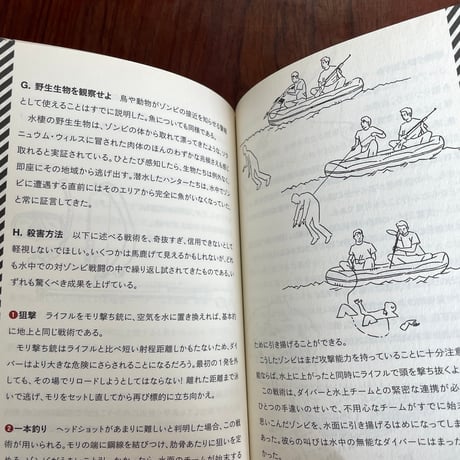 G. 野生生物を観察せよ　鳥や動物がゾンビの接近を知らせる警報
として使えることはすでに説明した。魚についても同様である。
水棲の野生生物は、ゾンビの体から取れて漂ってきたような、ソラ
ニュウム・ウィルスに冒された肉体のほんのわずかな兆候さえも感じ
取れると実証されている。ひとたび感知したら、生物たちは例外なく、
即座にその地域から逃げ出す。潜水したハンターたちは、水中でゾン
ビに遭遇する直前にはそのエリアから完全に魚がいなくなっていた
と常に証言してきた。
H. 殺害方法　以下に述べる戦術を、奇抜すぎ、信用できないとして
軽視しないでほしい。いくつかは馬鹿げて見えるかもしれないが、ど
れも水中での対ゾンビ戦闘の中で繰り返し試されてきたものである。い
ずれも驚くべき成果を上げている。
❶狙撃　ライフルをモリ撃ち銃に、空気を水に置き換えれば、基本的
に地上と同じ戦術である。
モリ撃ち銃はライフルと比べ短い射程距離しかもたないため、ダイ
バーはより大きな危険にさらされることになるだろう。最初の1発を外
しても、その場でリロードしようとしてはならない！ 離れた距離まで泳
いで逃げ、モリをセットし直してから再び標的に立ち向かえ。
❷一本釣り　ヘッドショットがあまりに難しいと判明した場合、この戦
術が用いられる。モリの端に鋼線を結びつけ、肋骨あたりに狙いを定
ために引き揚げることができる。
こうしたゾンビはまだ攻撃能力を持っていることに十分注意
が必要だ。水上に上がったと同時にライフルで頭を撃ち抜く
この戦術は、ダイバーと水上チームとの緊密な連携が必
ひとつの手違いのせいで、不用心なチームがすでに始末
思いこんだゾンビを、水面に引き揚げるはめになってしま
あった。彼らの叫びは水中の無能なダイバーにはまった